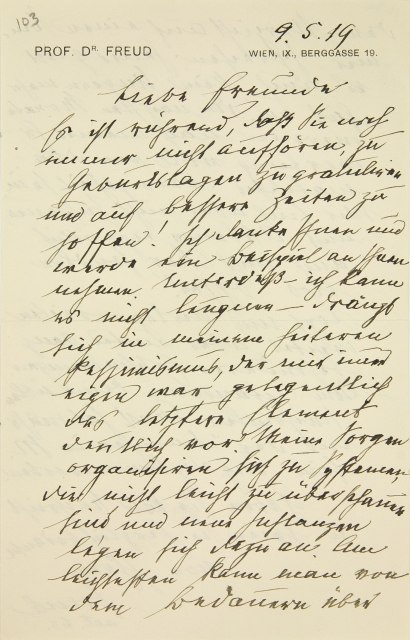 103
9.5.19
PROF. DR. FREUD
WIEN, IX., BERGGASSE 19.
Liebe Freunde
Es ist rührend, daß Sie noch
immer nicht aufhören, zu
Geburtstagen zu gratuliren
und auf bessere Zeiten zu
hoffen! Ich danke Ihnen und
werde ein Beispiel an Ihnen
nehmen. Unterdeß – ich kann
es nicht leugnen – drängt
sich in meinem heiteren
Pessimismus, der mir immer
eigen war gelegentlich
das letztere Element
deutlich vor. Meine Sorgen
organisiren sich zu Systemen,
die nicht leicht zu überschauen
sind und neue Instanzen
legen sich dazu an. Am
leichtesten kann man von
dem Bedauern über